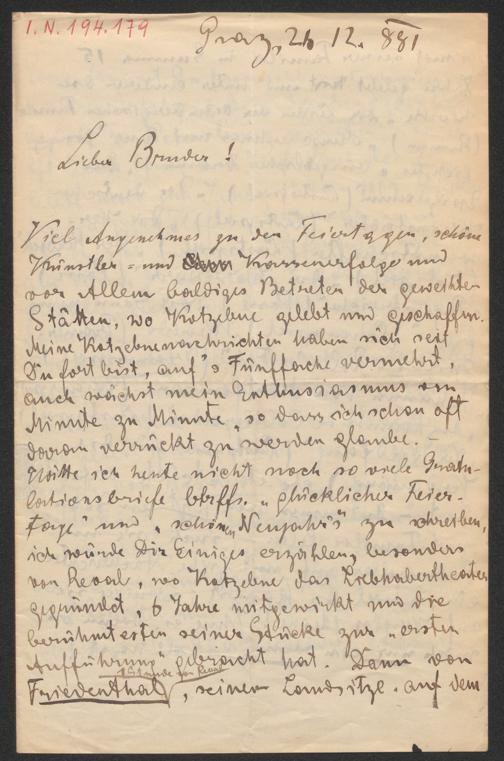 I.N. 194.179
Graz, 26 12. 881
Lieber Bruder!
Viel Angenehmes zu den Feiertagen, schöne
Künstler- und Kassenerfolge und
vor Allem baldiges Betreten der geweihten
Stätten, wo Kotzebue gelebt und geschaffen.
Meine Kotzebuenachrichten haben sich seit
Du fort bist, auf's Fünffache vermehrt,
auch wächst mein Enthusiasmus von
Minute zu Minute, so dass ich schon oft
daran verrückt zu werden glaube. –
Hätte ich heute nicht noch so viele Gratu-
lationsbriefe btrffs. „glücklicher Feier-
tage" und „schönen Neujahr's" zu schreiben,
ich würde Dir Einiges erzählen, besonders
von Reval, wo Kotzebue das Liebhabertheater
gegründet, 6 Jahre mitgewirkt und die
berühmtesten seiner Stücke zur „ersten
Aufführung" gebracht hat. Dann von
1 Stunde von Reval
Friedenthal, seinem Landsitze. auf dem